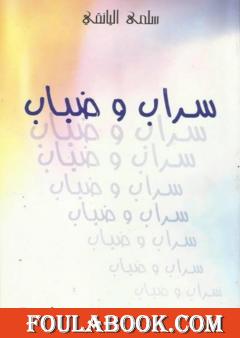 سلمى اليانقي
سراب و ضباب
سراب و ضباب
سراب و ضباب
سراب و ضباب
سراب و ضباب
سراب و ضباب
سراب و ضباب
سراب و ضباب
FOULABOOK.COM